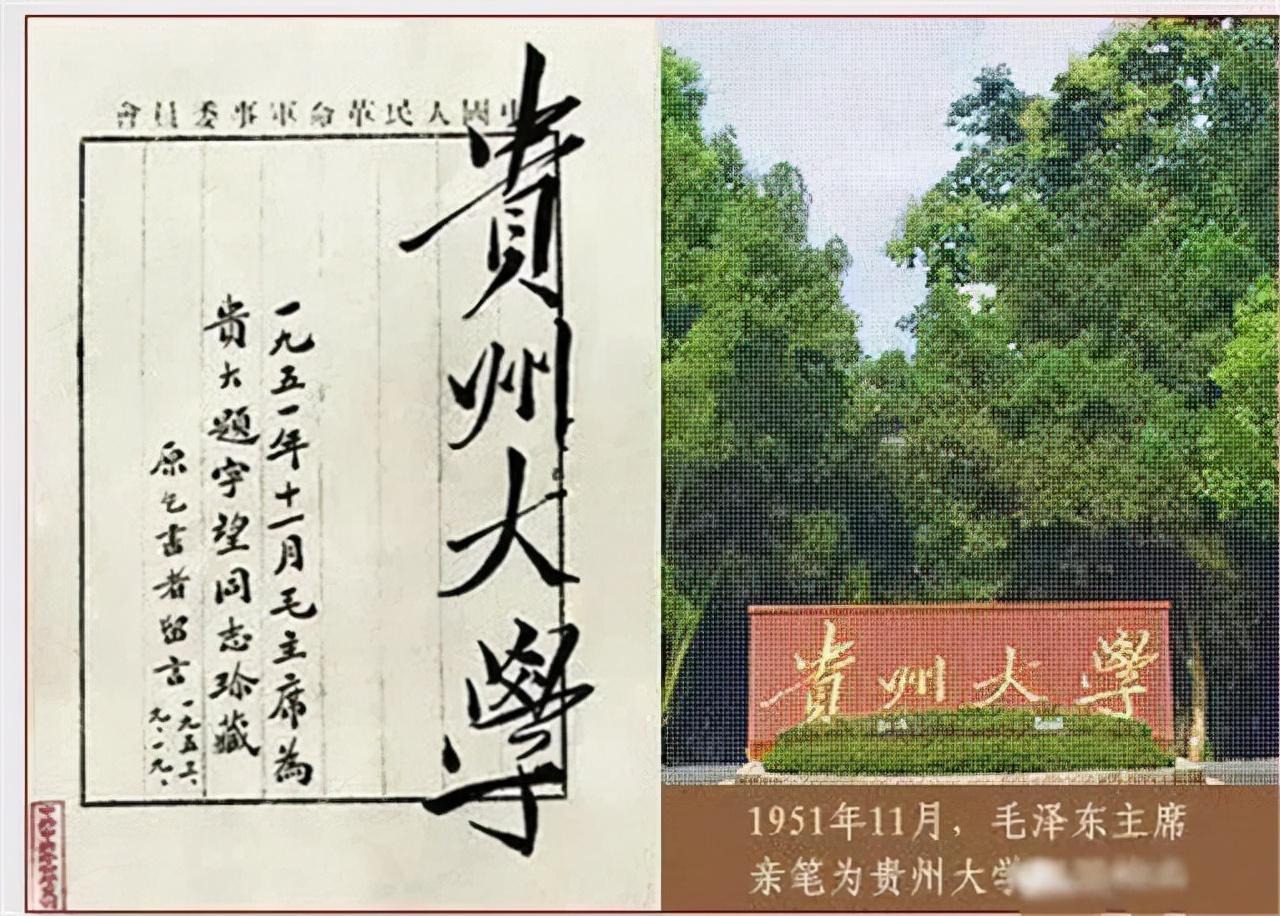 中國人民革命軍事委員會
貴州大學
一九五一年十一月毛主席為
貴大題字望同志珍藏
原乞書者留言
貴州大學
1951年11月，毛泽东主席
亲笔为贵州大学